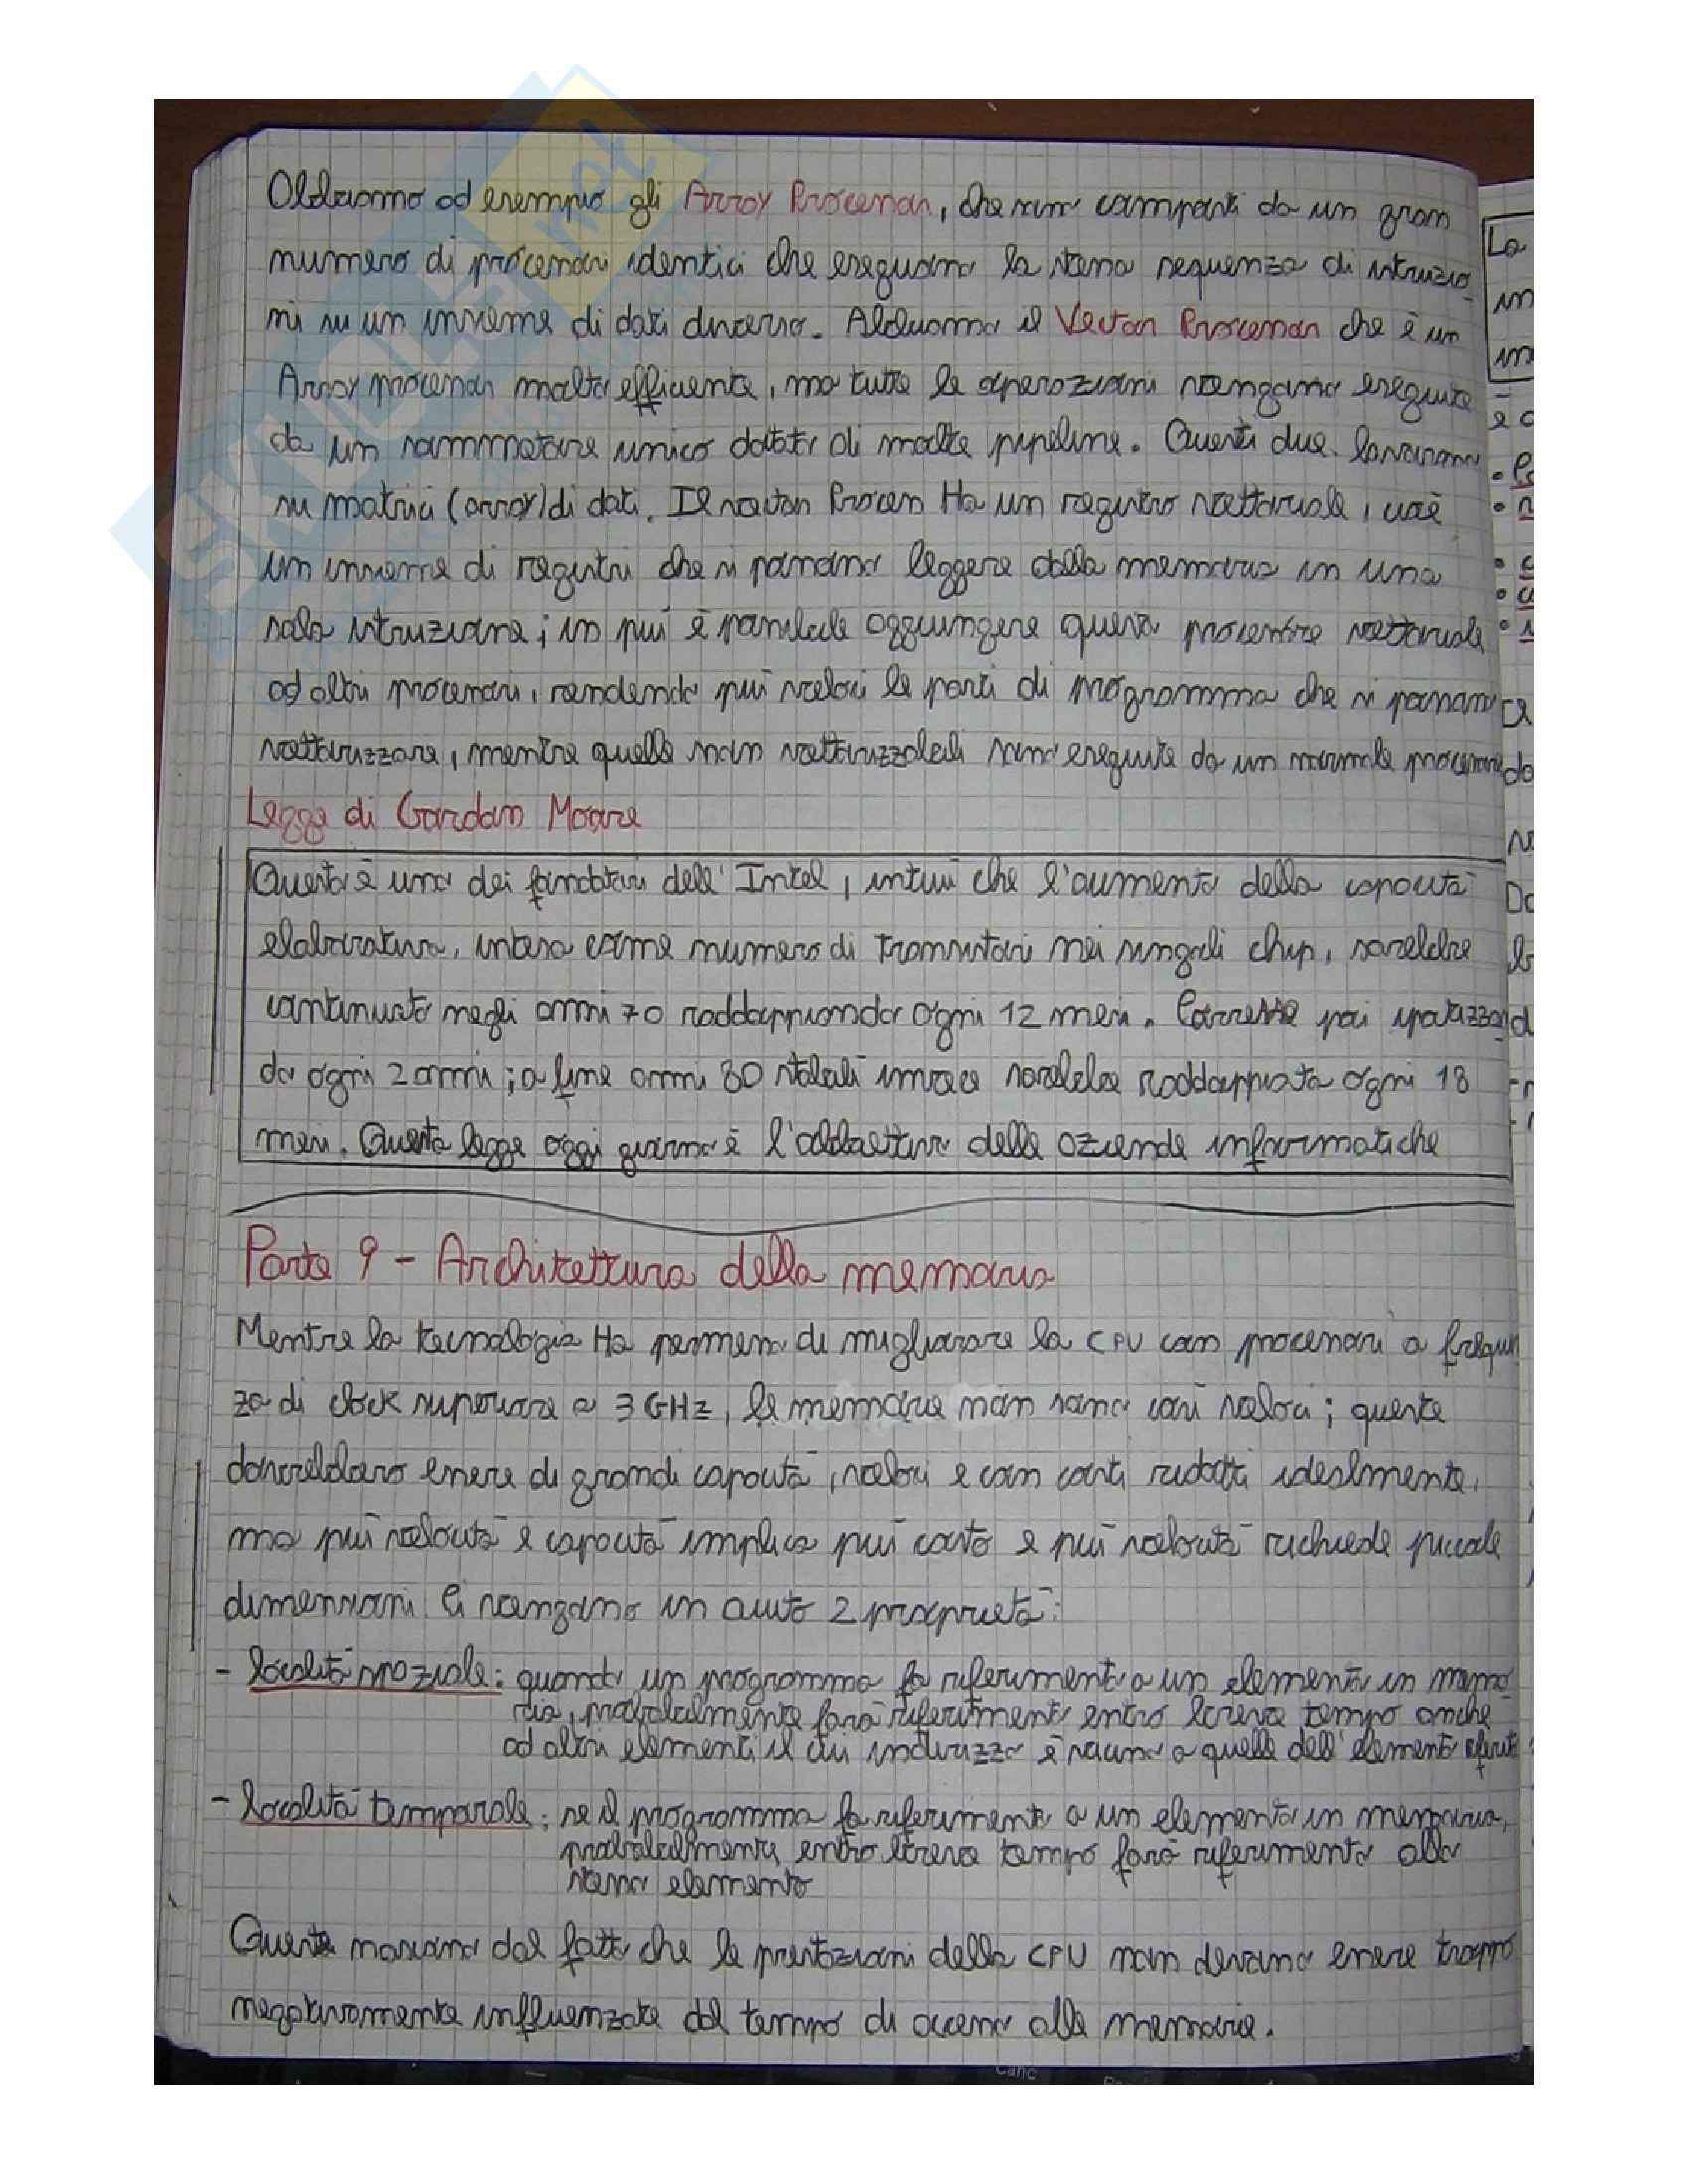 Abbiamo ad esempio gli Array Processor, che sono composti da un gran
numero di processori identici che eseguono la stessa sequenza di istruzio
ni su un insieme di dati diverso. Abbiamo il Vector Processor che è un
Array processor molto efficiente, ma tutte le operazioni vengono eseguite
da un sommatore unico dotato di molte pipeline. Questi due lavorano
su matrici (array) di dati. Il vector Proces Ha un registro vettoriale, cioè
un insieme di registri che si possono leggere dalla memoria in una
sola istruzione; in più è possibile aggiungere questo processore vettoriale
ad altri processori, rendendo più veloci le parti di programma che si possono
vettorizzare, mentre quelle non vettorizzabili sono eseguite da un normale processore
Legge di Gordon Moore
Questo è uno dei fondatori dell'Intel, intuì che l'aumento della capacità
elaborativa, intesa come numero di transistori nei singoli chip, sarebbe
continuato negli anni 70 raddoppiando ogni 12 mesi. Corresse poi ipotizzan
do ogni 2 anni; a fine anni 80 stabilì invece sarebbe raddoppiata ogni 18
mesi. Questa legge oggi giorno è l'obbiettivo delle aziende informatiche
Parte 9 - Architettura della memoria
Mentre la tecnologia Ha permesso di migliorare la CPU con processori a frequen
za di clock superiore a 3 GHz, le memorie non sono così veloci; queste
dovrebbero essere di grandi capacità, veloci e con costi ridotti idealmente,
ma più velocità e capacità implica più costo e più velocità richiede piccole
dimensioni Ci vengono in aiuto 2 proprietà:
- località spaziale: quando un programma fa riferimento a un elemento in memo
ria, probabilmente farà riferimento entro breve tempo anche
ad altri elementi il cui indirizzo è vicino a quello dell'elemento
- Località temporale: se il programma fa riferimento a un elemento in memoria,
probabilmente entro breve tempo farà riferimento allo
stesso elemento
Queste nascono dal fatto che le prestazioni della CPU non devono essere troppo
negativamente influenzate dal tempo di accesso alle memorie.
SKUOLA.net